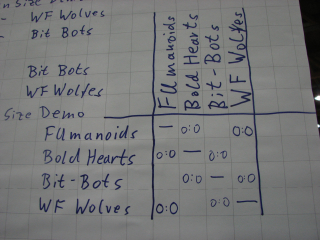 n Size Demo
- WF Wolves
- Bit Bots
Bit Bots
WF Wolfes
Size Demo
FUmanoids
Bold Hearts
Bit-Bots
WF Wolfes
FUmanoids — 0:0 0:0
Bold Hearts 0:0 — 0:0
Bit-Bots 0:0 — 0:0
WF Wolves 0:0 0:0 —